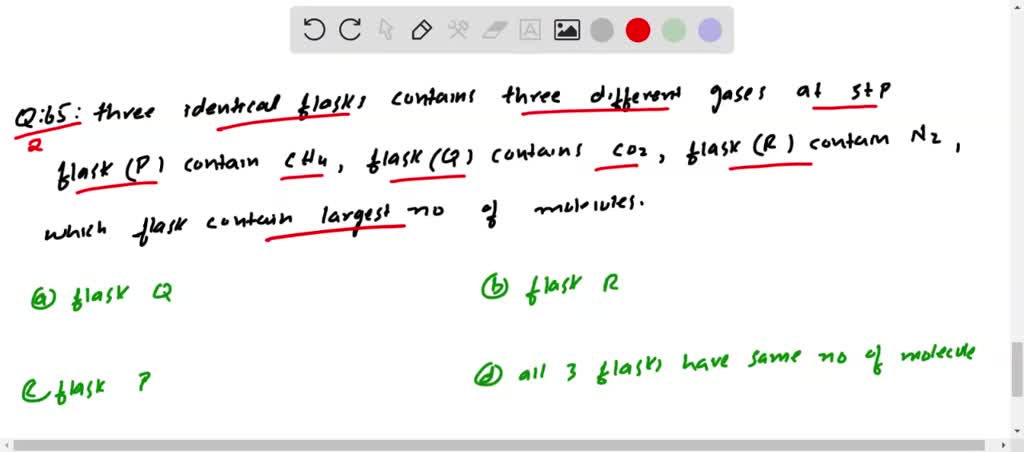 Q:65: three identical flasks contains three different gases at stp
flask (P) contain CH4, flask (Q) contains CO2, flask (R) contain N2,
which flask contain largest no of molecules.
(a) flask Q
(b) flask R
(c flask P
(d) all 3 flasks have same no of molecule